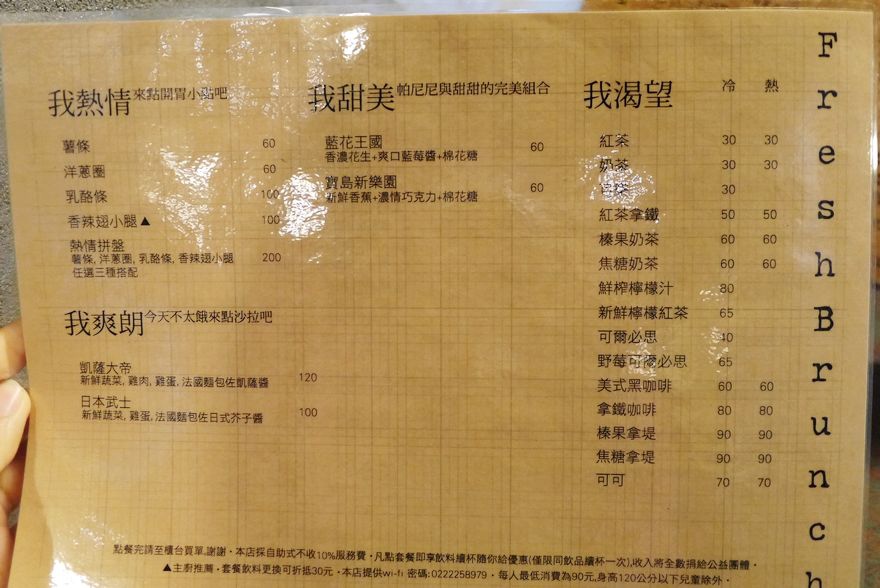 我熱情 來點開胃小點吧
薯條 60
洋蔥圈 60
乳酪條 100
香辣翅小腿▲ 100
熱情拼盤
薯條, 洋蔥圈, 乳酪條, 香辣翅小腿 200
任選三種搭配
我爽朗 今天不太餓來點沙拉吧
凱薩大帝
新鮮蔬菜, 雞肉, 雞蛋, 法國麵包佐凱薩醬 120
日本武士
新鮮蔬菜, 雞蛋, 法國麵包佐日式芥子醬 100
我甜美 帕尼尼與甜甜的完美組合
藍花王國
香濃花生+爽口藍莓醬+棉花糖 60
寶島新樂園
新鮮香蕉+濃情巧克力+棉花糖 60
我渴望 冷 熱
紅茶 30 30
奶茶 30 30
30
紅茶拿鐵 50 50
榛果奶茶 60 60
焦糖奶茶 60 60
鮮榨檸檬汁 80
新鮮檸檬紅茶 65
可爾必思 40
野莓可爾必思 65
美式黑咖啡 60 60
拿鐵咖啡 80 80
榛果拿堤 90 90
焦糖拿堤 90 90
可可 70 70
Fresh Brunch
點餐完請至櫃台買單,謝謝・本店採自助式不收10%服務費・凡點套餐即享飲料續杯隨你給優惠(僅限同飲品續杯一次),收入將全數捐給公益團體・
▲主廚推薦・套餐飲料更換可折抵30元・本店提供wi-fi 密碼:0222258979・每人最低消費為90元,身高120公分以下兒童除外・